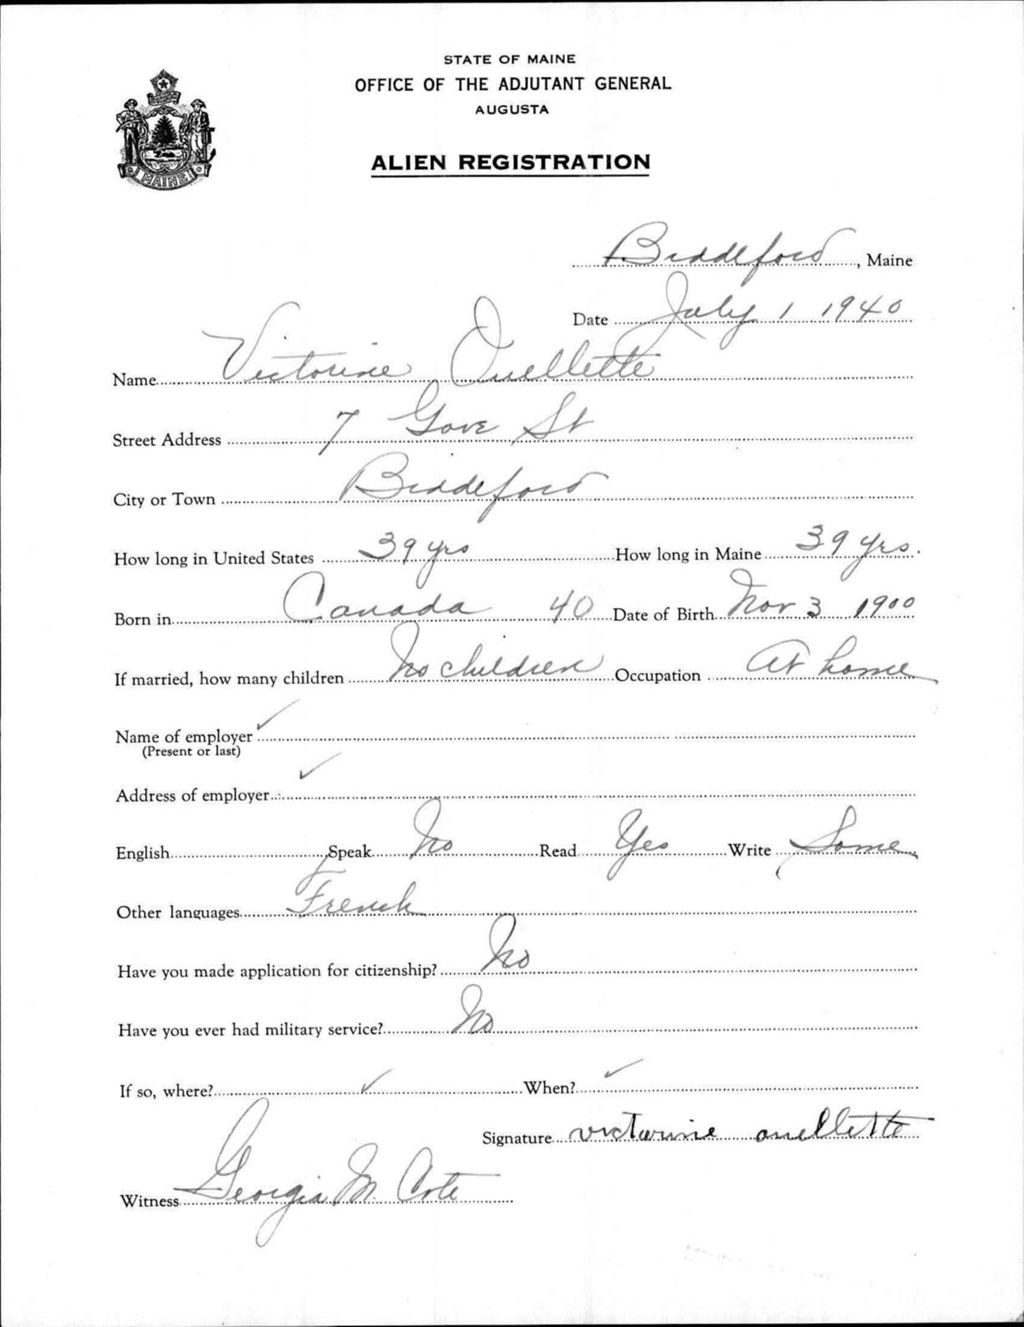 STATE OF MAINE
OFFICE OF THE ADJUTANT GENERAL
AUGUSTA
ALIEN REGISTRATION
MAINE
Biddeford, Maine
Date July 1 1940
Name Victorine Ouellette
Street Address 7 Gove St
City or Town Biddeford
How long in United States 39 yrs How long in Maine 39 yrs.
Born in Canada 40 Date of Birth Nov 3 1900
If married, how many children No children Occupation At home
Name of employer ✓
(Present or last)
Address of employer ✓
English Speak No Read Yes Write Some
Other languages French
Have you made application for citizenship? No
Have you ever had military service? No
If so, where? ✓ When? ✓
Signature victorine ouellette
Witness Georgia M Cote